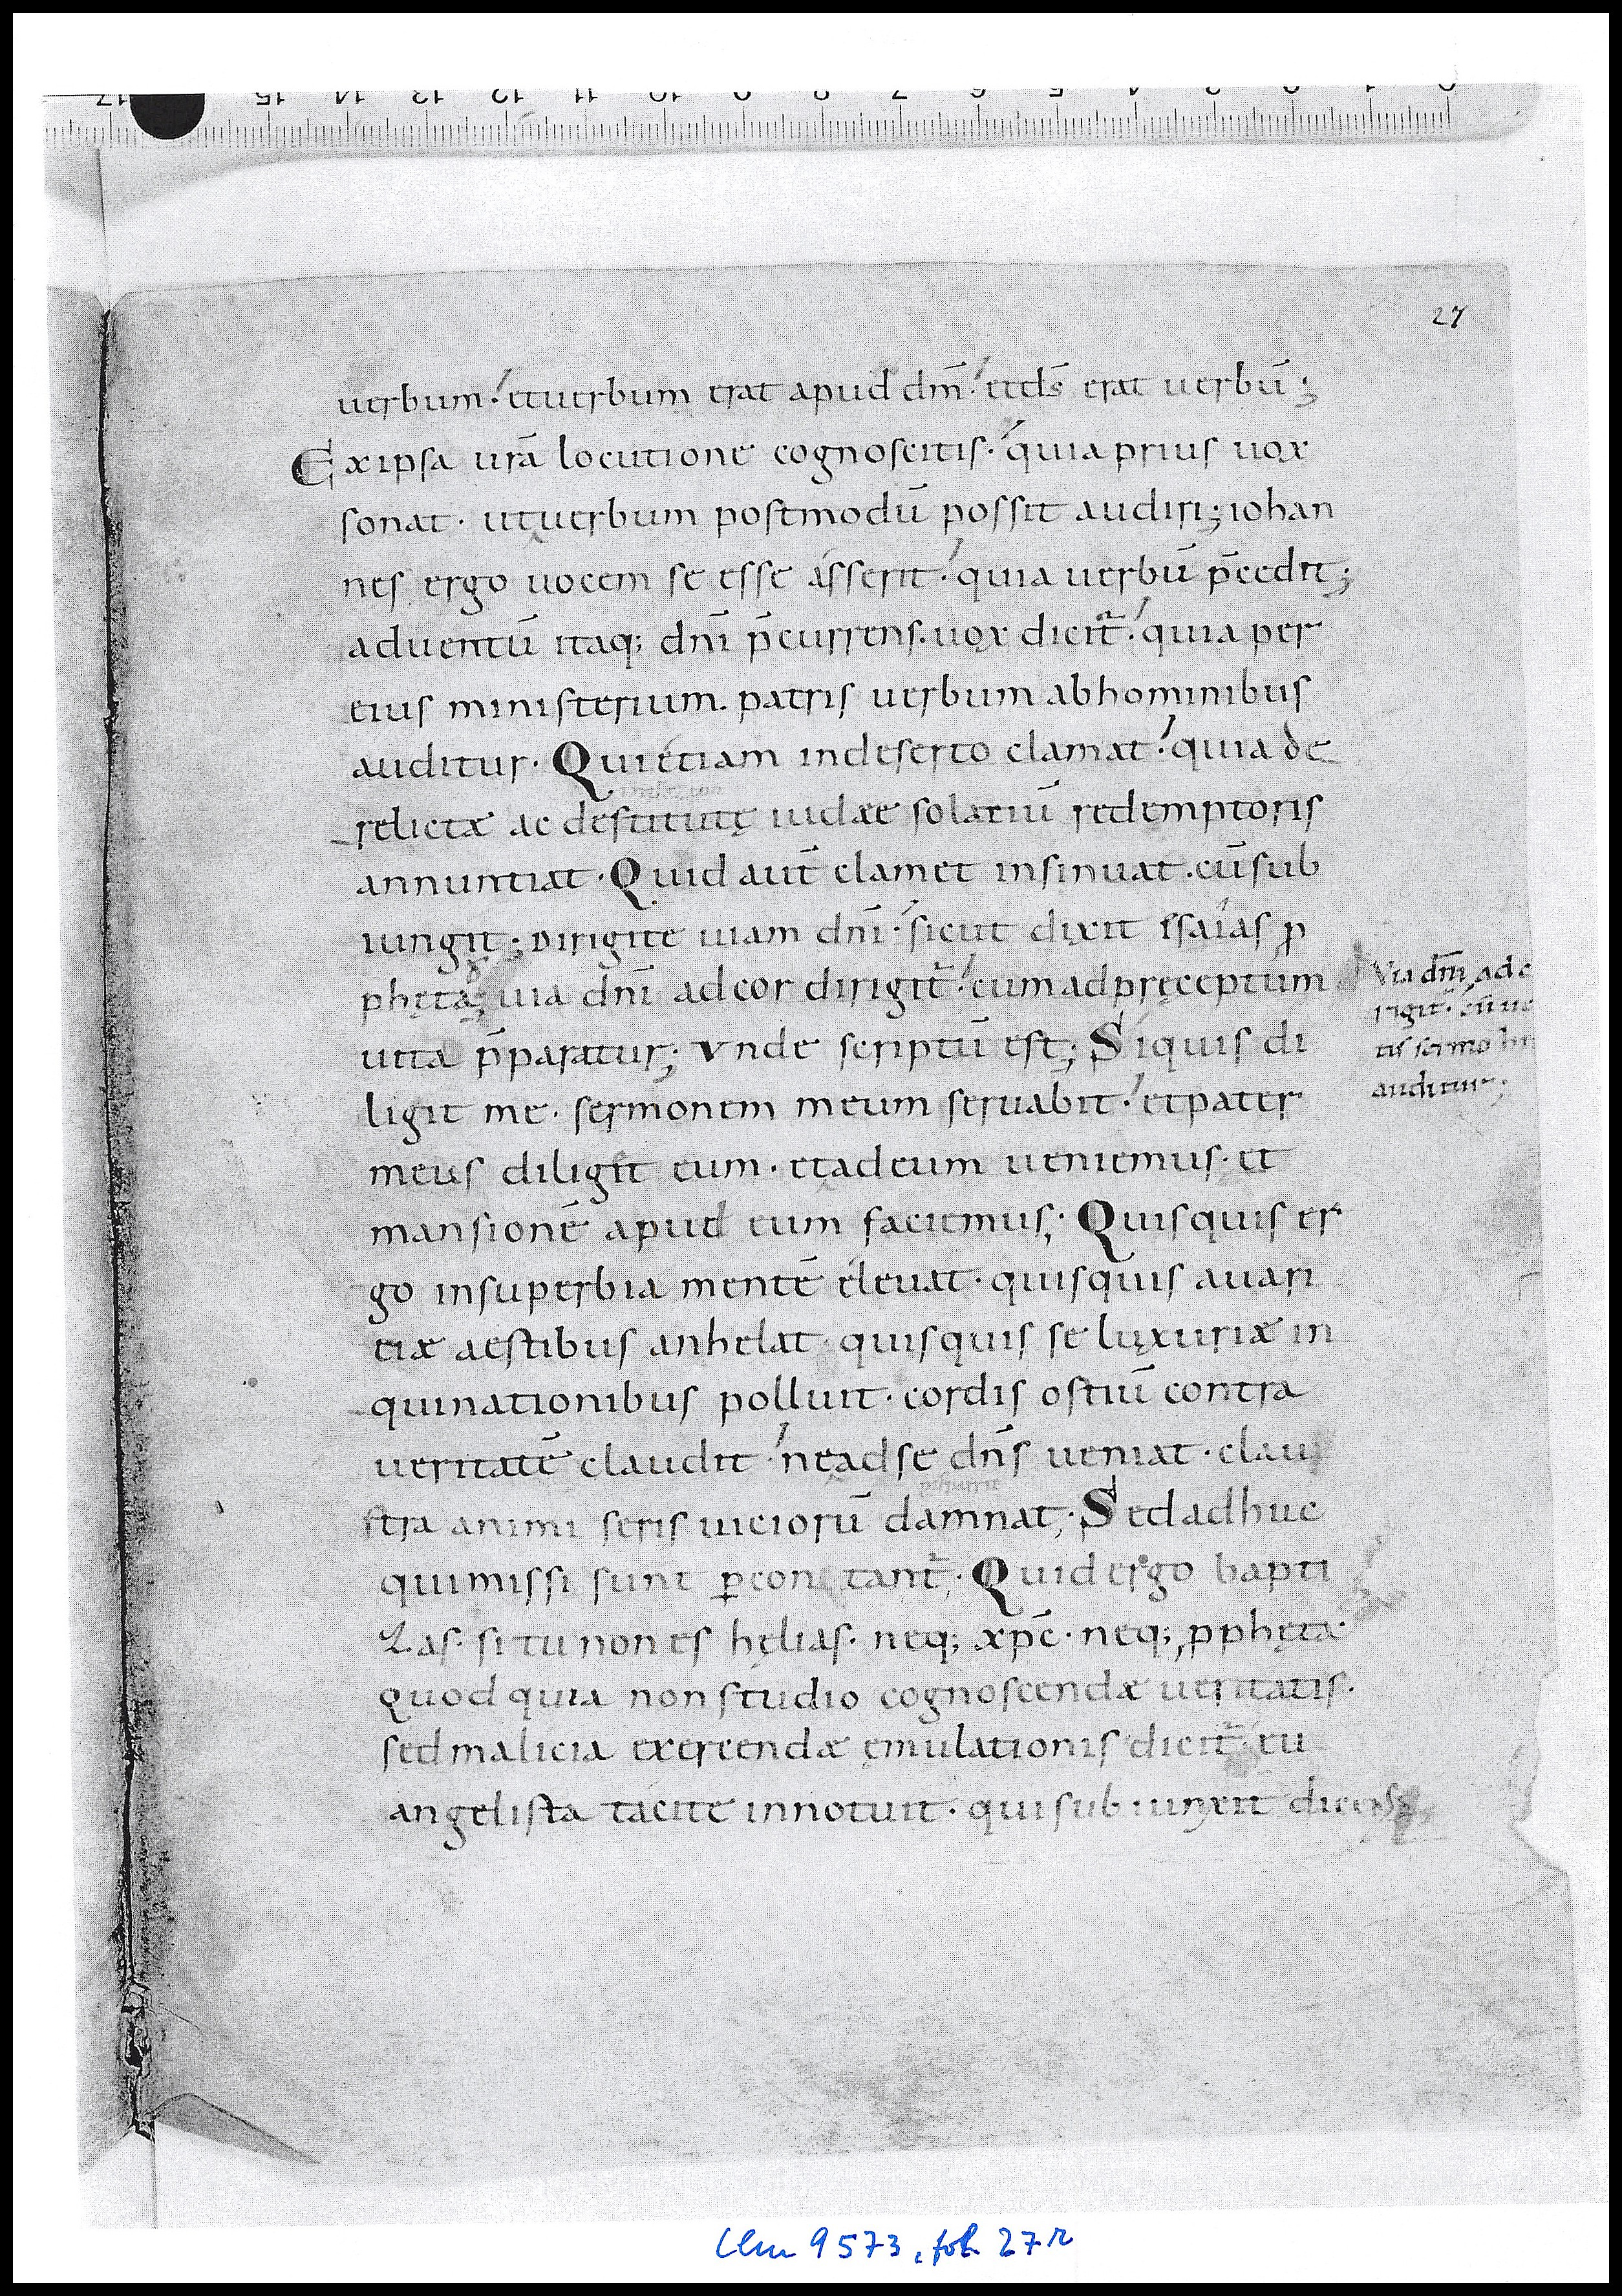 27
uerbum· etuerbum erat apud dm̄· etds̄ erat uerbū;
Exipsa urā locutione cognoscitis· quia prius uox
sonat· utuerbum postmodū possit audiri; iohan
nes ergo uocem se esse asserit· quia uerbū p̄cedit;
aduentū itaq; dn̄i p̄currens· uox dicit᷑· quia per
eius ministerium· patris uerbum abhominibus
auditur· Quietiam indeserto clamat· quia de
relictæ ac destitutę iudæe solatiū redemptoris
annuntiat· Quid aut̄ clamet insinuat· cū sub
iungit; Dirigite uiam dn̄i· sicut dixit esaias ꝓ
phęta; uia dn̄i adcor dirigit᷑· cum adpręceptum
uita p̄paratur; Vnde scriptū est; Siquis di
ligit me· sermonem meum seruabit· etpater
meus diligit eum· etadeum ueniemus· et
mansionē apud eum faciemus; Quisquis er
go insuperbia mentē eleuat· quisquis auari
ciæ aestibus anhelat· quisquis se luxuriæ in
quinationibus polluit· cordis ostiū contra
ueritatē claudit· neadse dn̄s ueniat· clau
stra animi seris uiciorū damnat; Sedadhuc
quimissi sunt ꝑcontant᷑; Quidergo bapti
zas· si tu non es hęlias· neq; xp̄c· neq; ꝓphęta·
Quod quia non studio cognoscendæ ueritatis·
sedmalicia exercendæ ęmulationis dicit᷑ eu
angelista tacite innotuit· qui subiunxit dicens
Via dn̄i ad c
rigit᷑· cū ue
tis sermo hu
auditur;
Clm 9573, fol. 27r